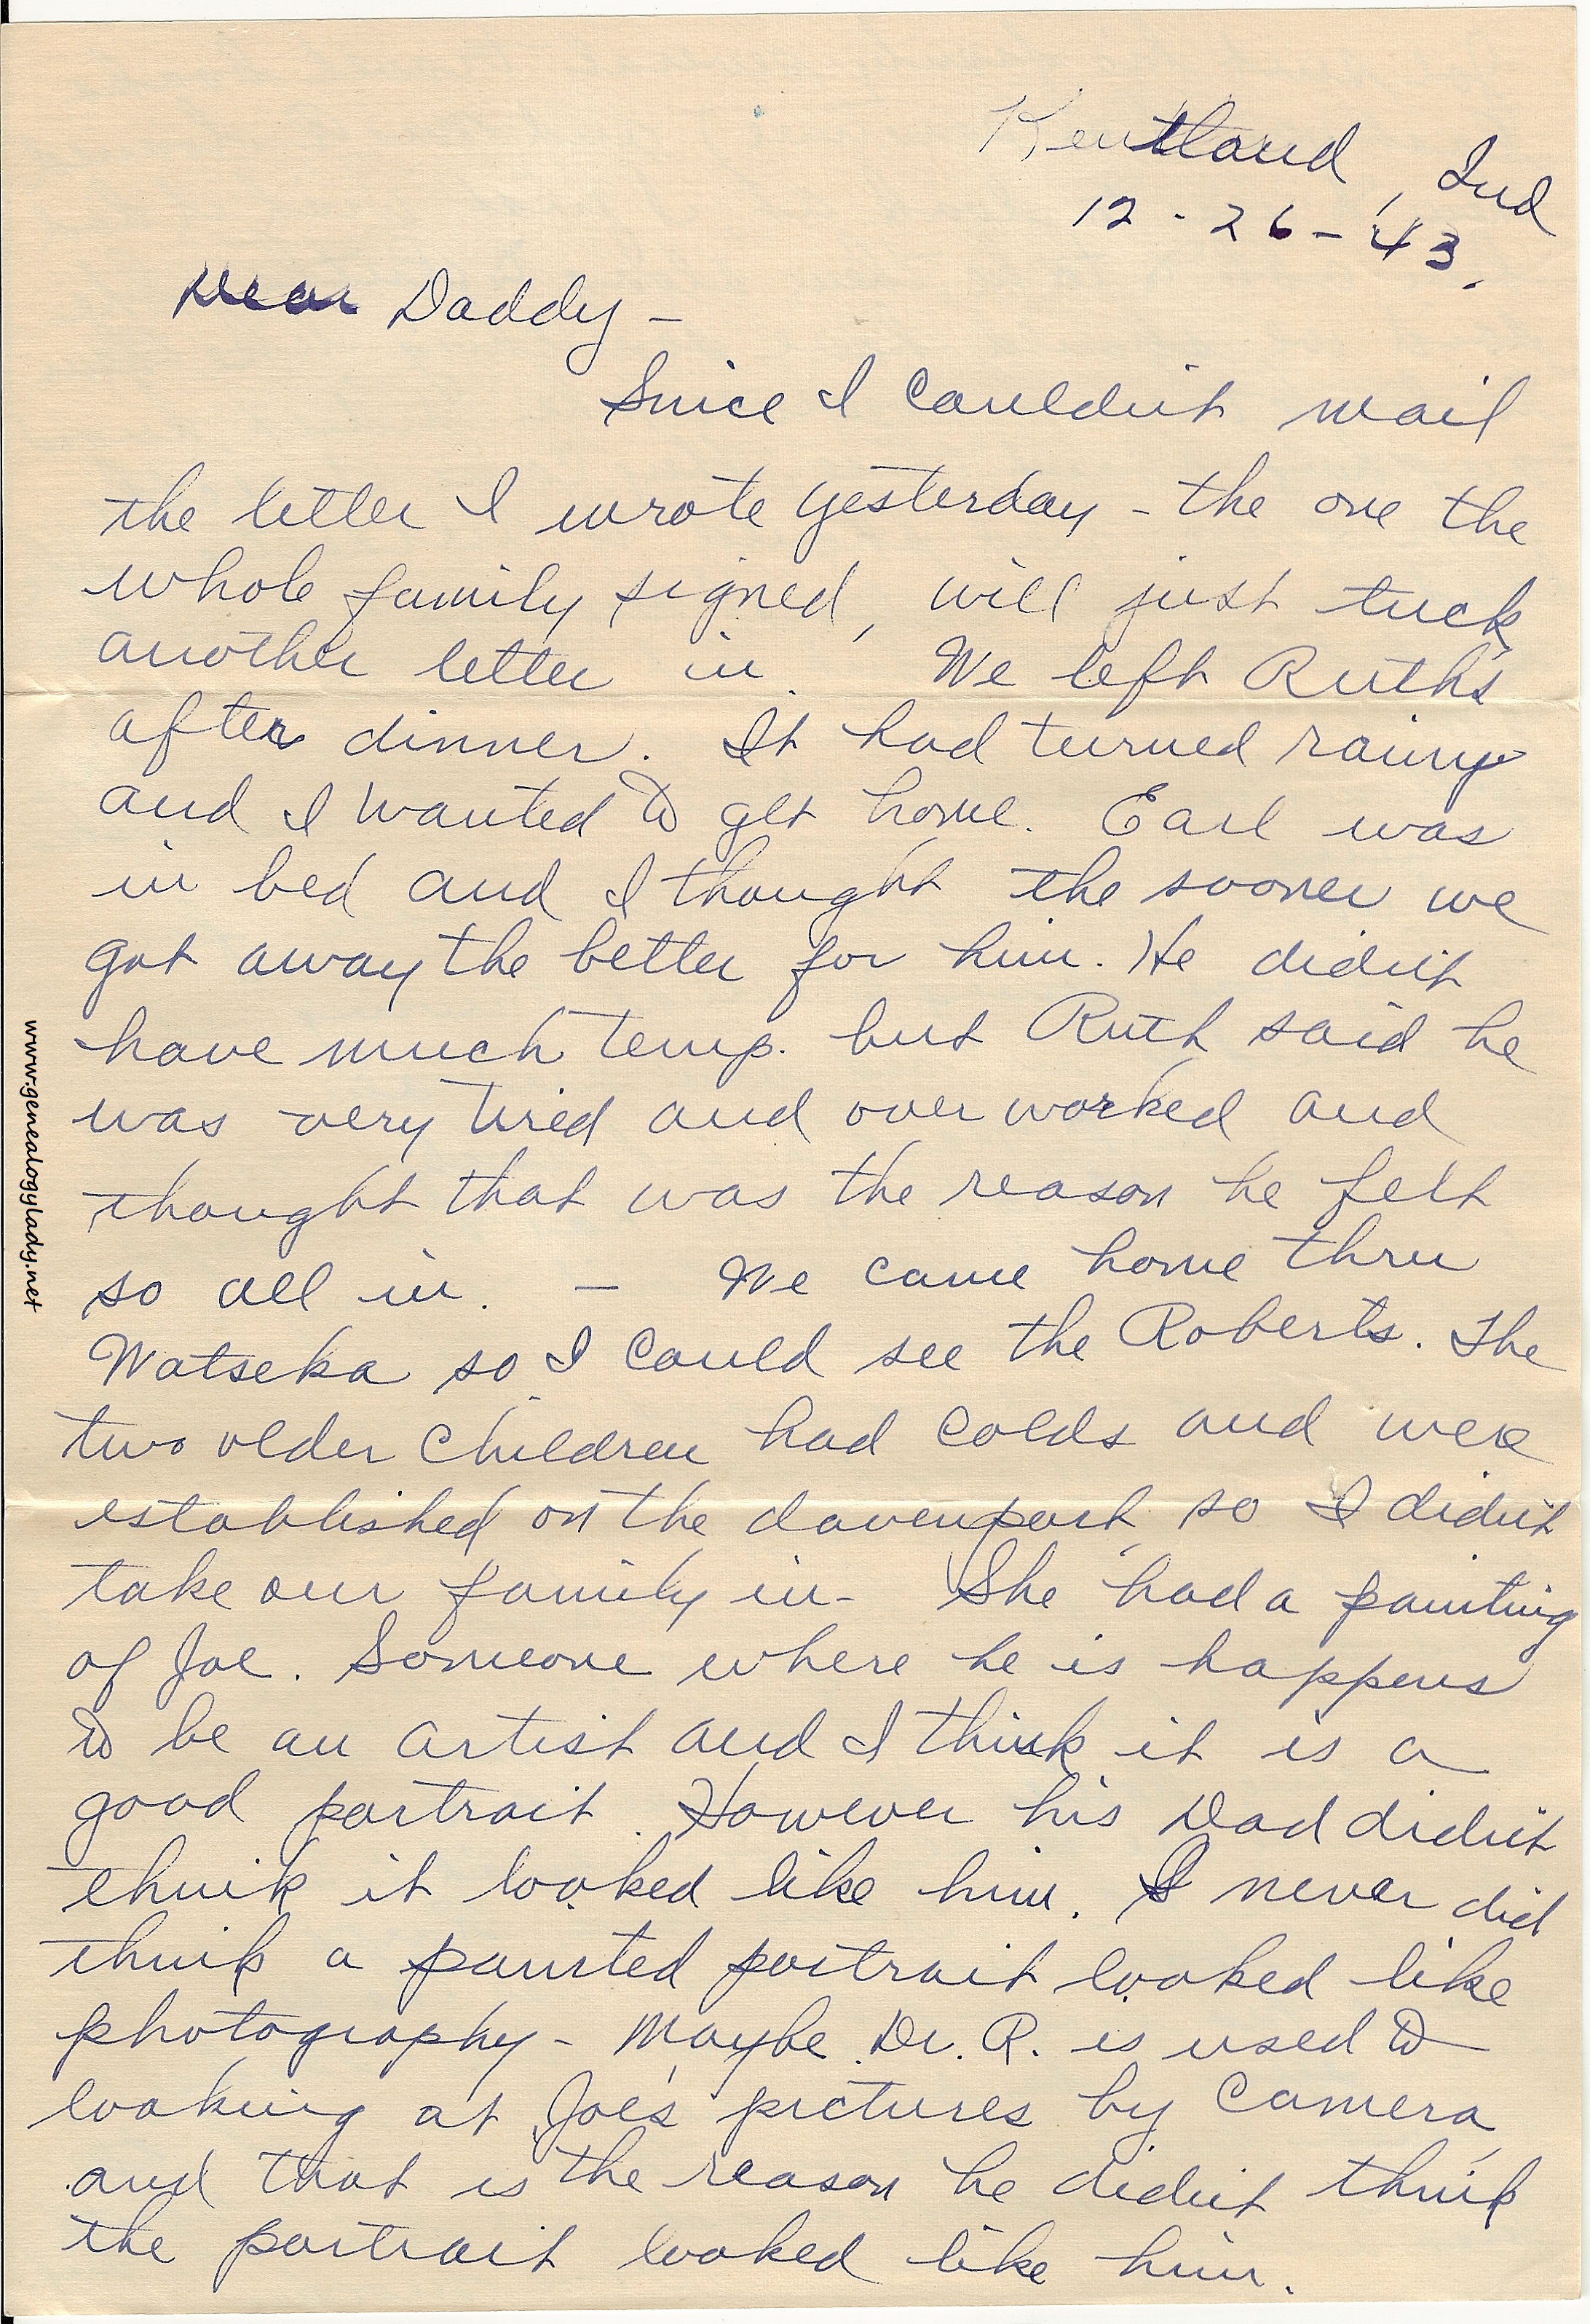 Kentland, Ind
12-26-43.
Dear Daddy -
Since I couldn't mail
the letter I wrote yesterday - the one the
whole family signed, will just tuck
another letter in. We left Ruth's
after dinner. It had turned rainy
and I wanted to get home. Earl was
in bed and I thought the sooner we
got away the better for him. He didn't
have much temp. but Ruth said he
was very tired and over worked and
thought that was the reason he felt
so all in. - We came home thru
Watseka so I could see the Roberts. The
two older children had colds and were
established on the davenport, so I didn't
take our family in - She had a painting
of Joe. Someone where he is happens
to be an artist and I think it is a
good portrait. However his Dad didn't
think it looked like him. I never did
think a painted portrait looked like
photography - Maybe Dr. R. is used to
looking at Joe's pictures by camera
and that is the reason he didn't think
the portrait looked like him.
www.genealogylady.net